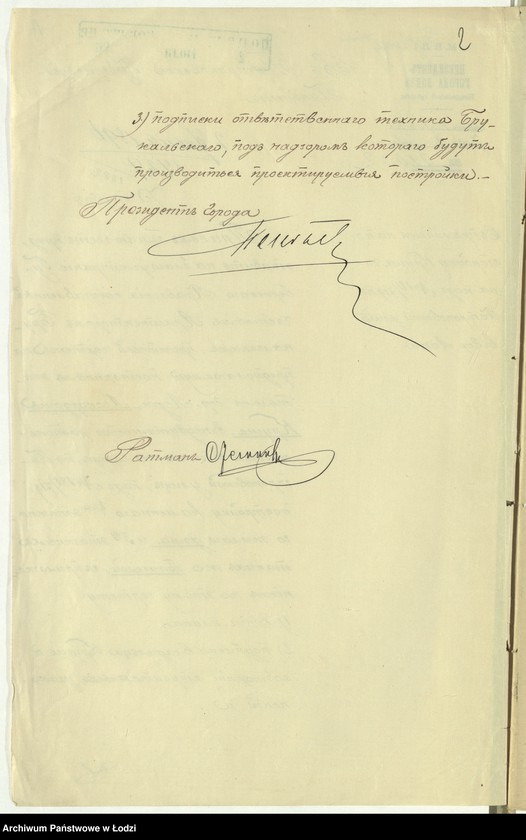 2
3) подписки отвѣтственнаго техника Бру-
кальскаго, подъ надзоромъ котораго будутъ
производиться проектируемыя постройки.-
Президентъ города
Ратманъ
Archiwum Państwowe w Łodzi